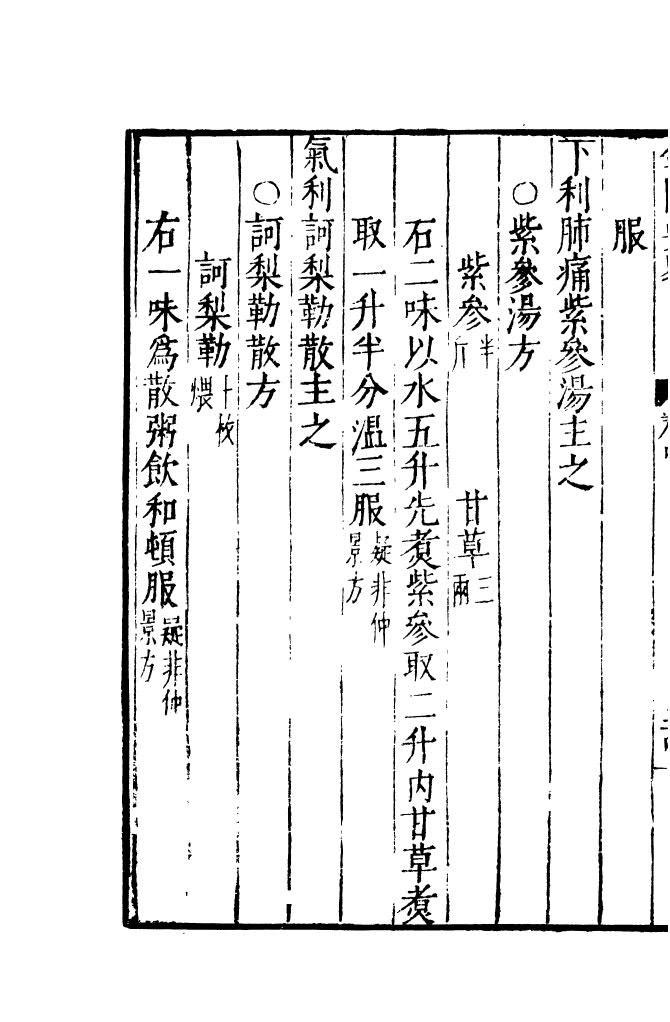 服
下利肺痛紫參湯主之
○紫參湯方
紫参半斤 甘草三兩
右二味以水五升先煮紫參取二升内甘草煮
取一升半分温三服疑非仲景方
氣利訶梨勒散主之
○訶梨勒散方
訶梨勒十枚煨
右一味爲散粥飲和頓服疑非仲景方